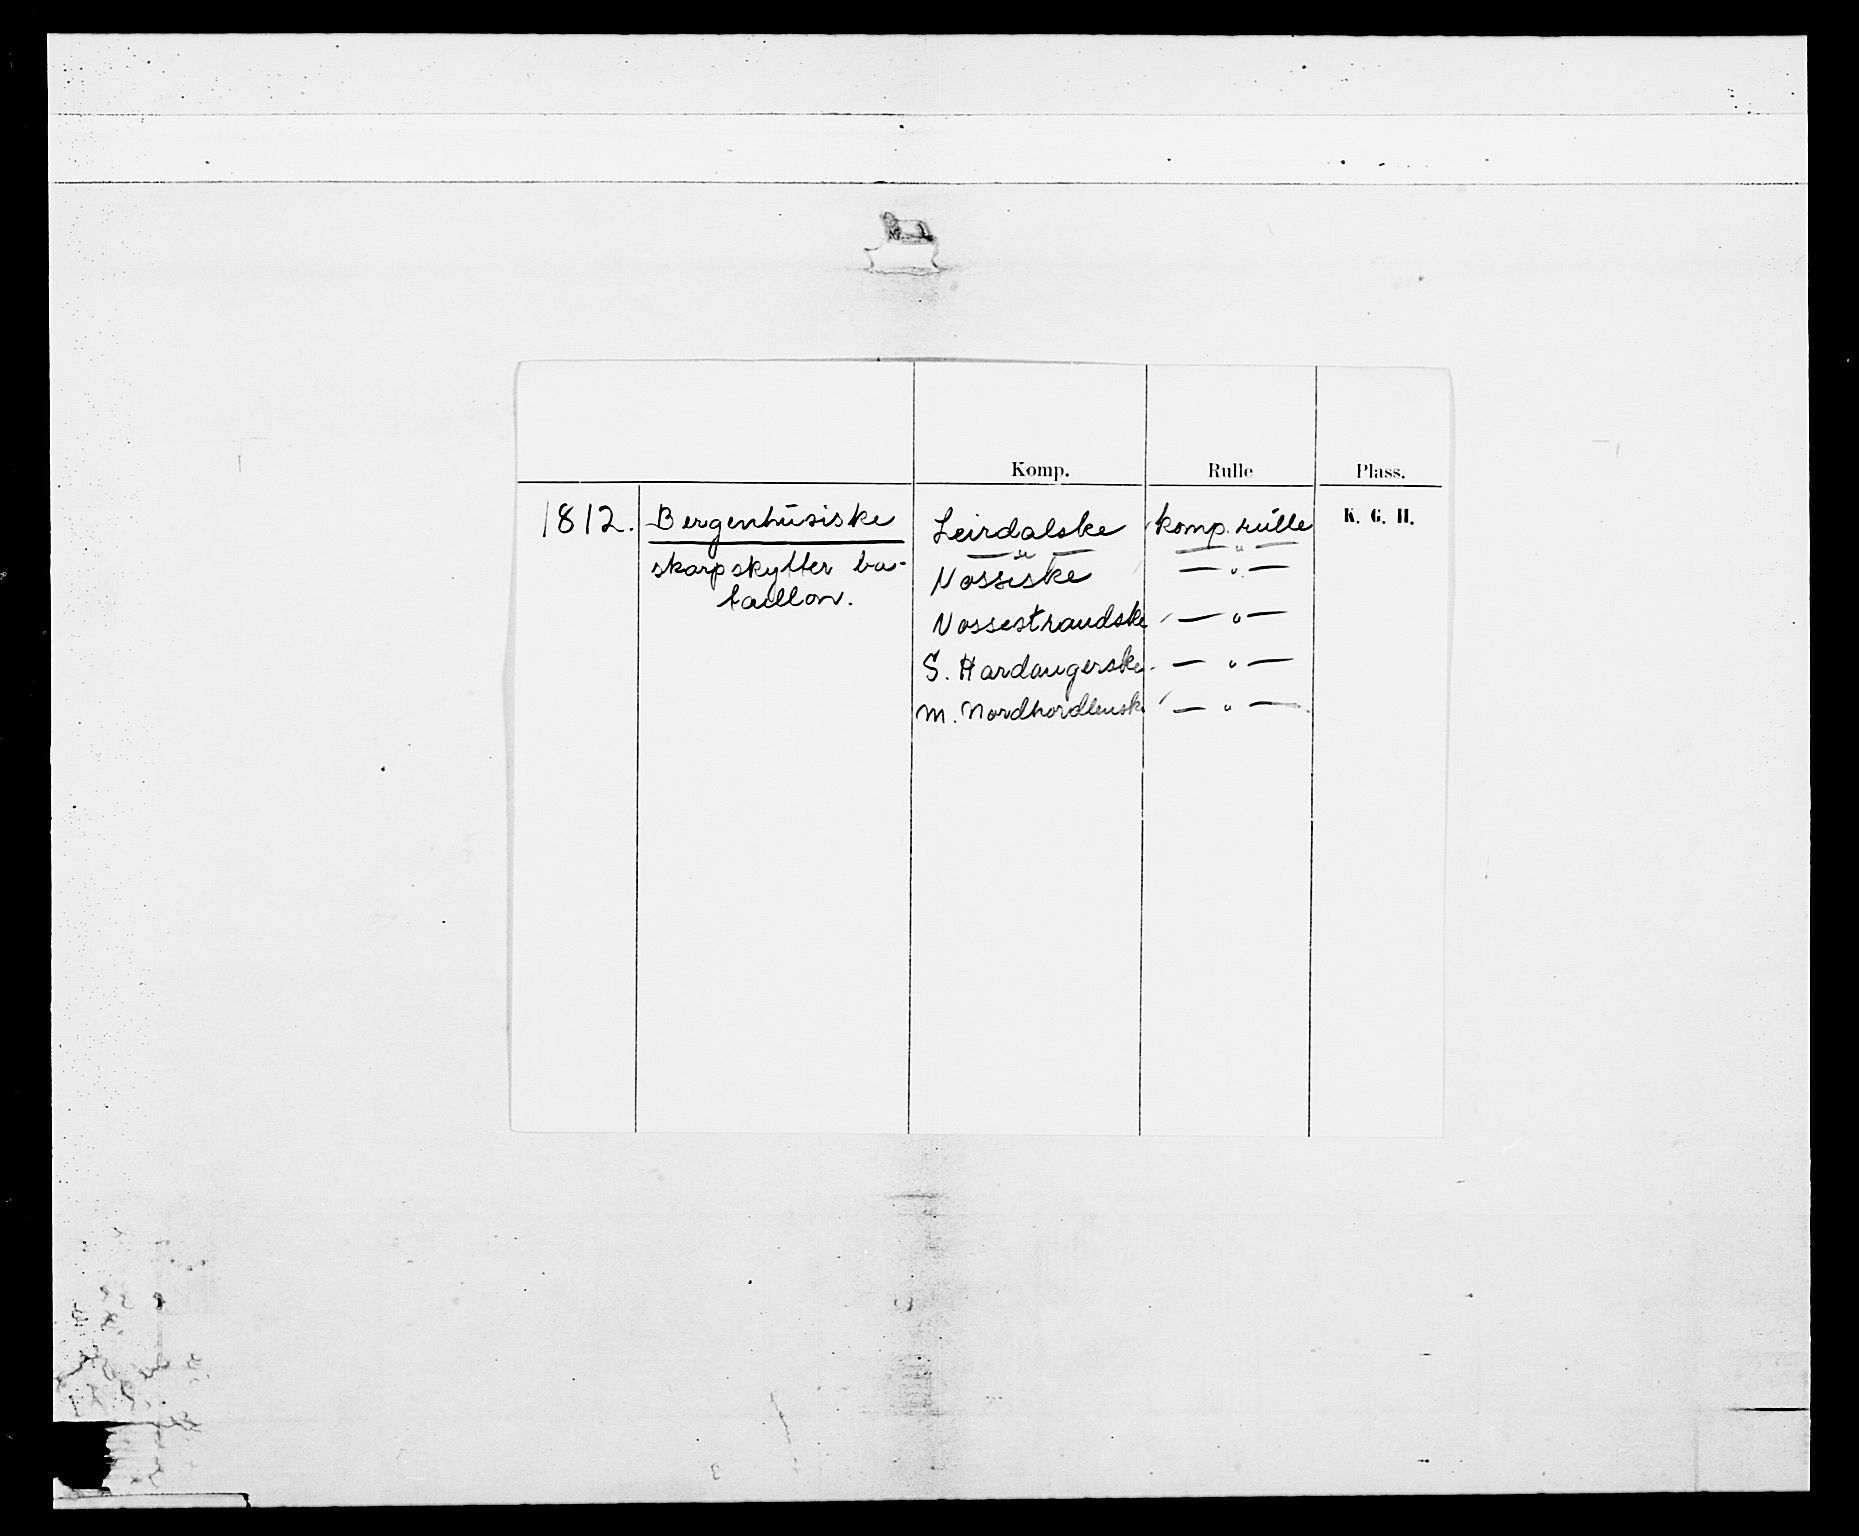 Komp. Rulle Plass.
1812. Bergenhusiske Leirdalske komp. rulle K. G. H.
— " — — " —
skarpskytter ba- Vossiske — " —
taillon.
Vossestrandske — " —
S. Hardangerske — " —
M. Nordhordlensk — " —